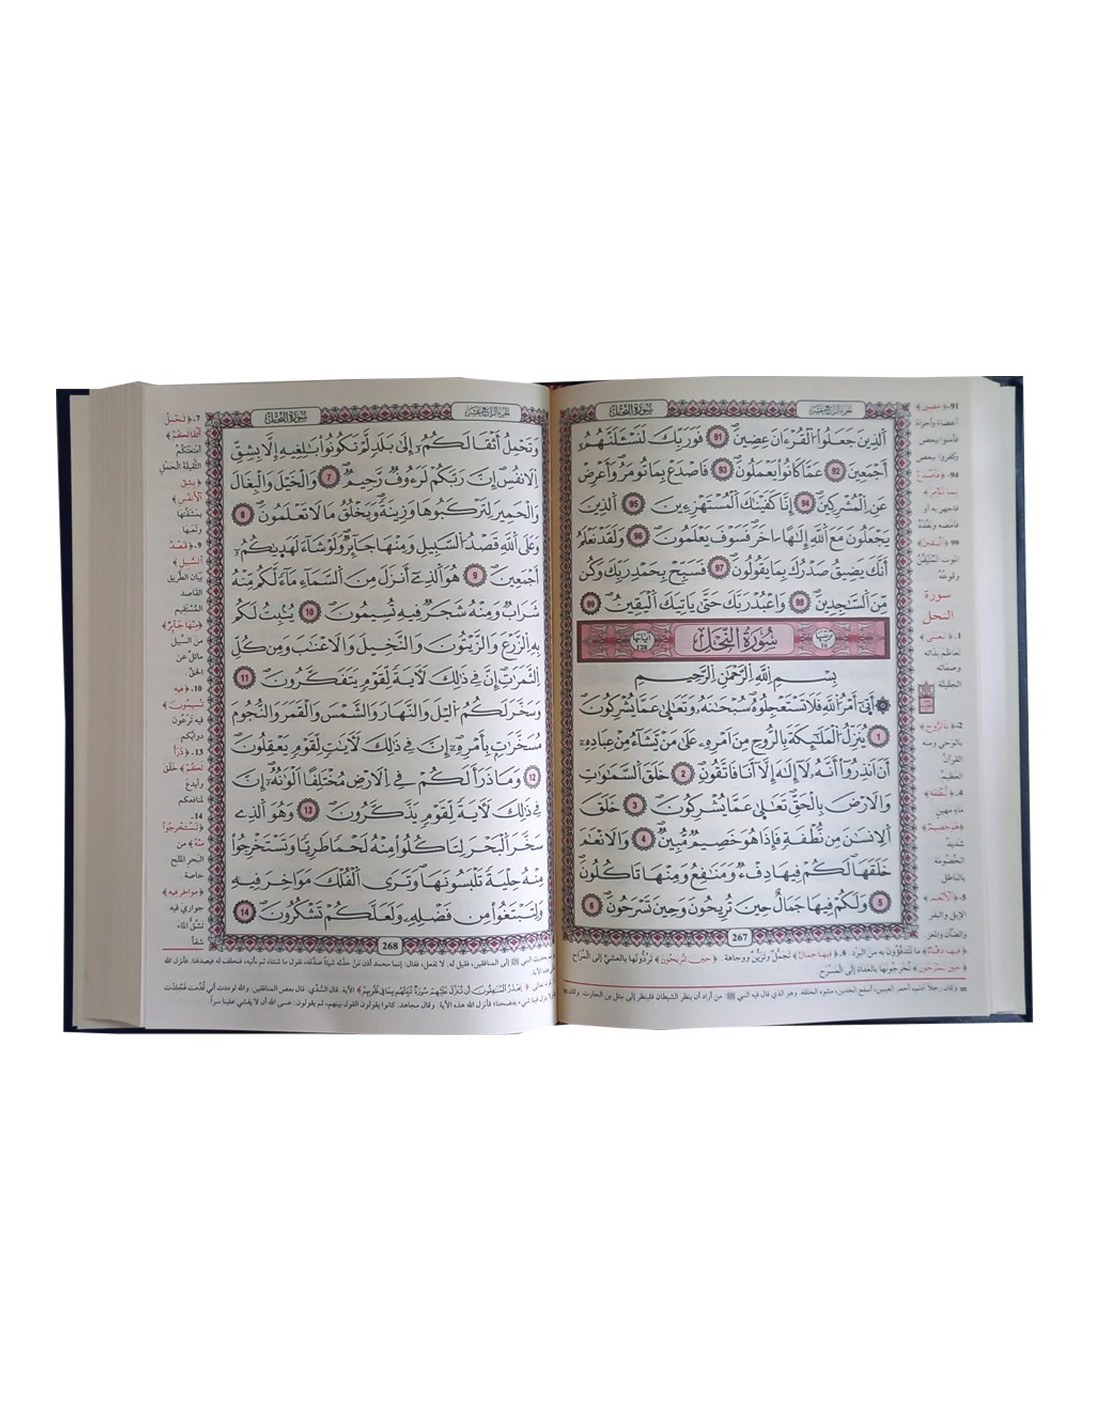 سورة النحل
الجزء الرابع عشر
الذين جعلوا القرءان عضين 91 فوربك لنسئلنهم
أجمعين 92 عما كانوا يعملون 93 فاصدع بما تومر وأعرض
عن المشركين 94 إنا كفينك المستهزءين 95 الذين
يجعلون مع الله إلها اخر فسوف يعلمون 96 ولقد نعلم
أنك يضيق صدرك بما يقولون 97 فسبح بحمد ربك وكن
من الساجدين 98 واعبد ربك حتى ياتيك اليقين 99
ترتيبها 16 سورة النحل آياتها 128
بسم الله الرحمن الرحيم
أتى أمر الله فلا تستعجلوه سبحنه وتعلى عما يشركون
1 ينزل الملئكة بالروح من امره على من يشاء من عباده
أن انذروا أنه لا إله إلا أنا فاتقون 2 خلق السموات
والارض بالحق تعلى عما يشركون 3 خلق
الانسن من نطفة فإذا هو خصيم مبين 4 والانعم
خلقها لكم فيها دفء ومنفع ومنها تاكلون
5 ولكم فيها جمال حين تريحون وحين تسرحون 6
267
91- ﴿عضين﴾
أعضاء وأجزاء
فآمنوا ببعض
وكفروا ببعض
94- ﴿فاصدع
بما تومر﴾
فاجهر به أو
فأمضه ونفذه
99- ﴿اليقين﴾
الموت المتيقن
وقوعه
سورة
النحل
1. ﴿تعلى﴾
تعاظم بذاته
وصفاته
الجليلة
2- ﴿بالروح﴾
بالوحي ومنه
القرآن
العظيم
4. ﴿نطفة﴾
ماء مهين
﴿هو خصيم﴾
شديد
الخصومة
بالباطل
5. ﴿الانعم﴾
الإبل والبقر
والضأن والمعز
﴿فيها دفء﴾ ما تتدفؤون به من البرد. 6. ﴿فيها جمال﴾ تجمل وتزين ووجاهة. ﴿حين تريحون﴾ تردونها بالعشي إلى المراح
﴿حين تسرحون﴾ تخرجونها بالغداة إلى المسرح
سورة النحل
الجزء الرابع عشر
وتحمل أثقالكم إلى بلد لم تكونوا بلغيه إلا بشق
الانفس إن ربكم لرءوف رحيم 7 والخيل والبغال
والحمير لتركبوها وزينة ويخلق ما لا تعلمون 8
وعلى الله قصد السبيل ومنها جائر ولو شاء لهديكم
أجمعين 9 هو الذي أنزل من السماء ماء لكم منه
شراب ومنه شجر فيه تسيمون 10 ينبت لكم
به الزرع والزيتون والنخيل والاعنب ومن كل
الثمرت إن في ذلك لآية لقوم يتفكرون 11
وسخر لكم اليل والنهار والشمس والقمر والنجوم
مسخرات بأمره إن في ذلك لآيات لقوم يعقلون
12 وما ذرأ لكم في الارض مختلفا الوانه إن
في ذلك لآية لقوم يذكرون 13 وهو الذي
سخر البحر لتاكلوا منه لحما طريا وتستخرجوا
منه حلية تلبسونها وترى الفلك مواخر فيه
ولتبتغوا من فضله ولعلكم تشكرون 14
268
7. ﴿تحمل
أثقالكم﴾
أمتعتكم
الثقيلة الحمل
﴿بشق
الانفس﴾
بمشقتها
وتعبها
9. ﴿قصد
السبيل﴾
بيان الطريق
القاصد
المستقيم
﴿منها جائر﴾
من السبيل
مائل عن
الحق
10. ﴿فيه
تسيمون﴾
فيه ترعون
دوابكم
13. ﴿ذرأ
لكم﴾ خلق
وأبدع
لمنافعكم
14.
﴿تستخرجوا
منه﴾ من
البحر الملح
خاصة
﴿مواخر فيه﴾
جواري فيه
تشق الماء
شقا